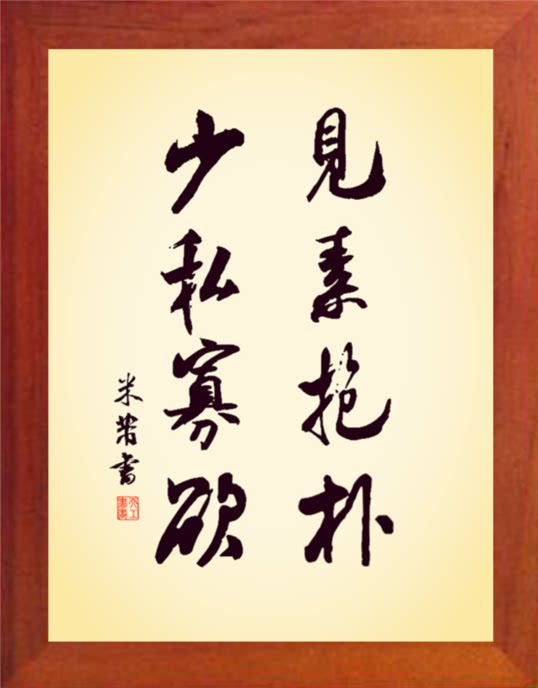 見素抱朴
少私寡欲
米芾書